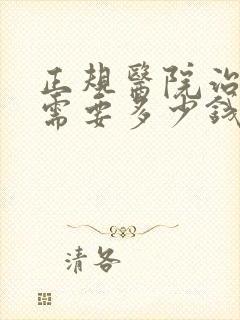 正規醫院治
需要多少錢
清各